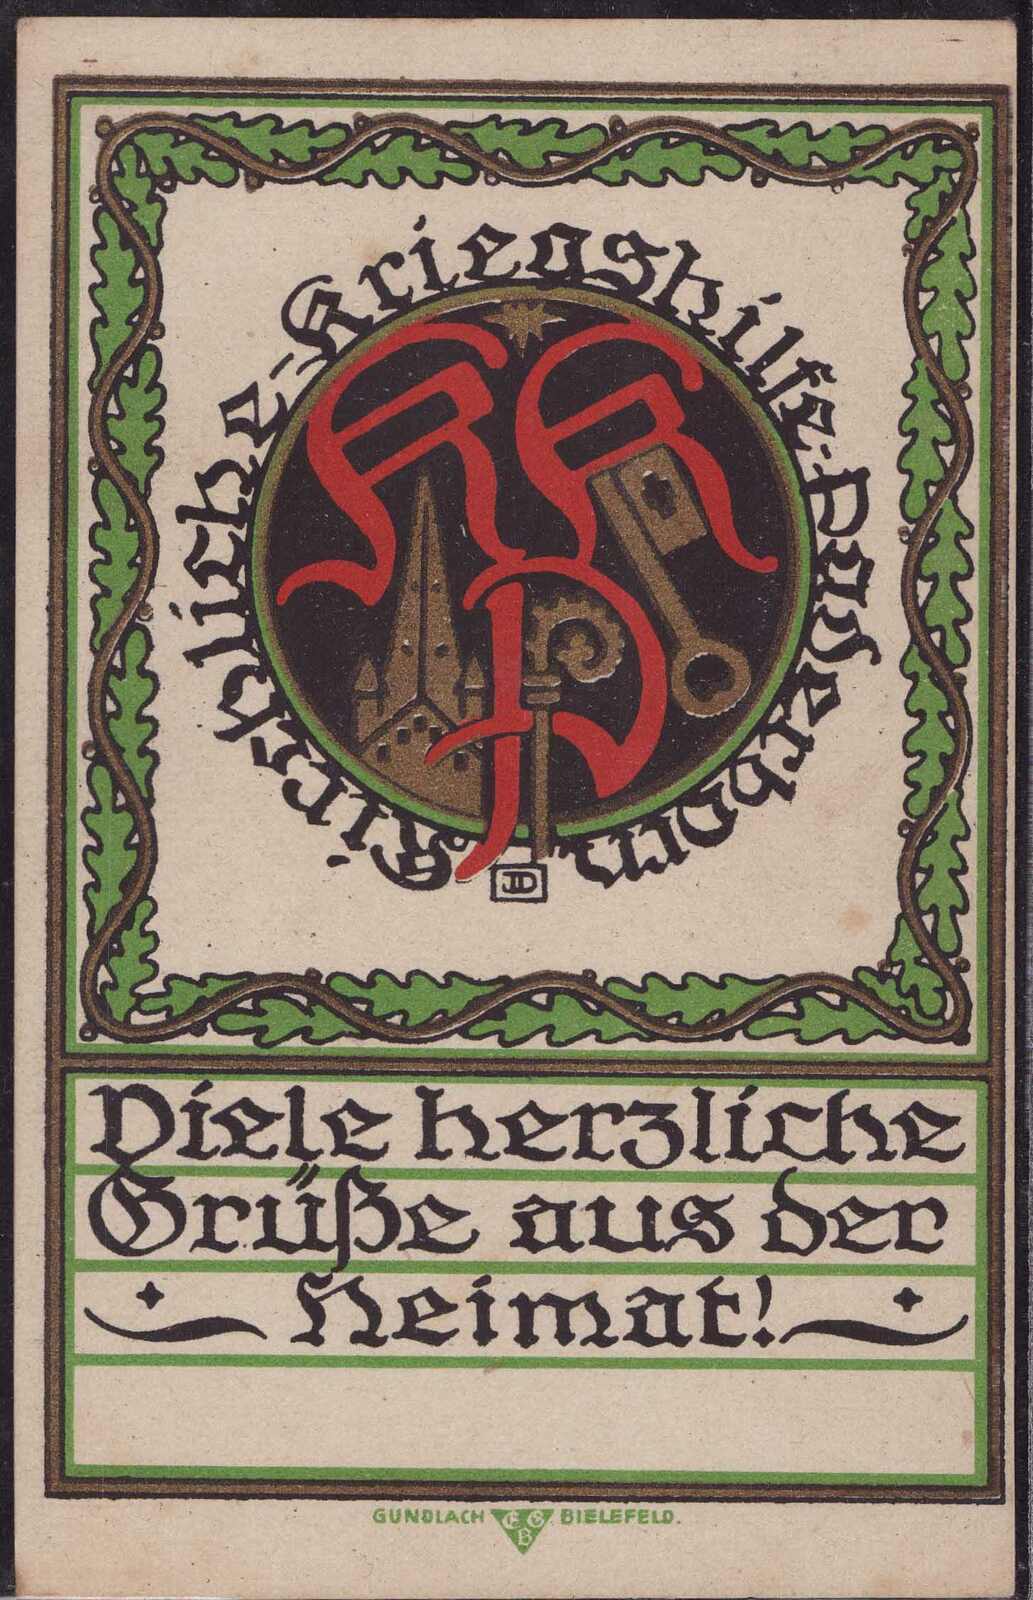 Kirchliche-Kriegshilfe-Paderborn
KKP
JD
Viele herzliche
Grüße aus der
Heimat!
GUNDLACH EGB BIELEFELD.